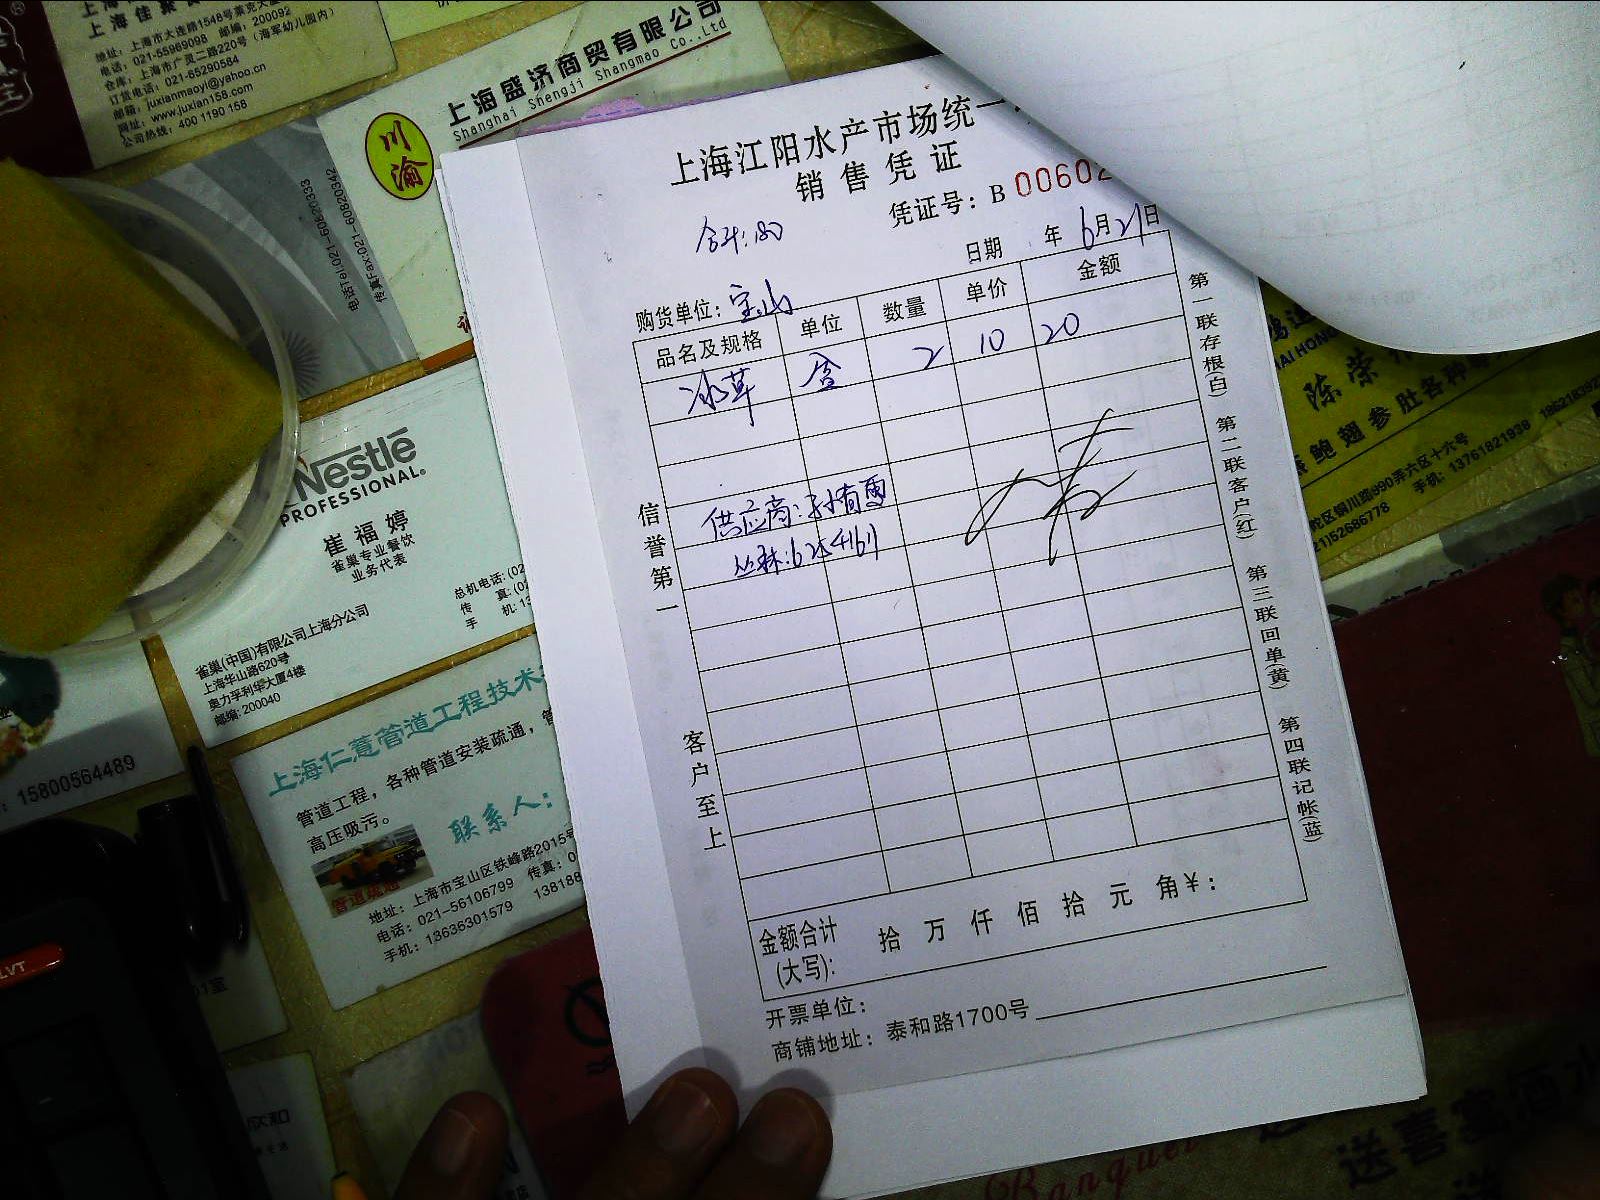 上海市大连路1548号莱克大
电话: 021-55969098 邮编: 200092
仓库: 上海市广灵二路220号 (海军幼儿园内)
订货电话: 021-65290584
邮箱: juxianmaoyi@yahoo.cn
网址: www.juxian158.com
公司热线: 400 1190 158
川渝
上海盛济商贸有限公司
Shanghai Shengji Shangmao Co.,Ltd
电话Tel:021-60820333
传真Fax:021-60820342
Nestlé
PROFESSIONAL.
崔福婷
雀巢专业餐饮
业务代表
总机电话: (02
传 真: (02
手 机: 13
雀巢(中国)有限公司上海分公司
上海华山路620号
奥力孚利华大厦4楼
邮编: 200040
15800564489
上海仁薏管道工程技术
管道工程, 各种管道安装疏通, 管
高压吸污。
联系人:
管道疏通
地址: 上海市宝山区铁峰路2015号
电话: 021-56106799 传真: 0
手机: 13636301579 13818
LVT
上海江阳水产市场统一
销售凭证
凭证号: B 00602
合计: 180
日期 年 6月21日
购货单位: 宝山
品名及规格 单位 数量 单价 金额
冰草 盒 2 10 20
供应商: 孙有雷
丛林: 6254167
信誉第一
客户至上
第一联存根(白) 第二联客户(红) 第三联回单(黄) 第四联记帐(蓝)
金额合计
(大写): 拾 万 仟 佰 拾 元 角 ¥:
开票单位:
商铺地址: 泰和路1700号
AI HONG
陈荣
鲍翅参肚各种
陀区铜川路990弄六区十六号
21)52686778 手机: 13761821938
Banquet
送喜宴酒水